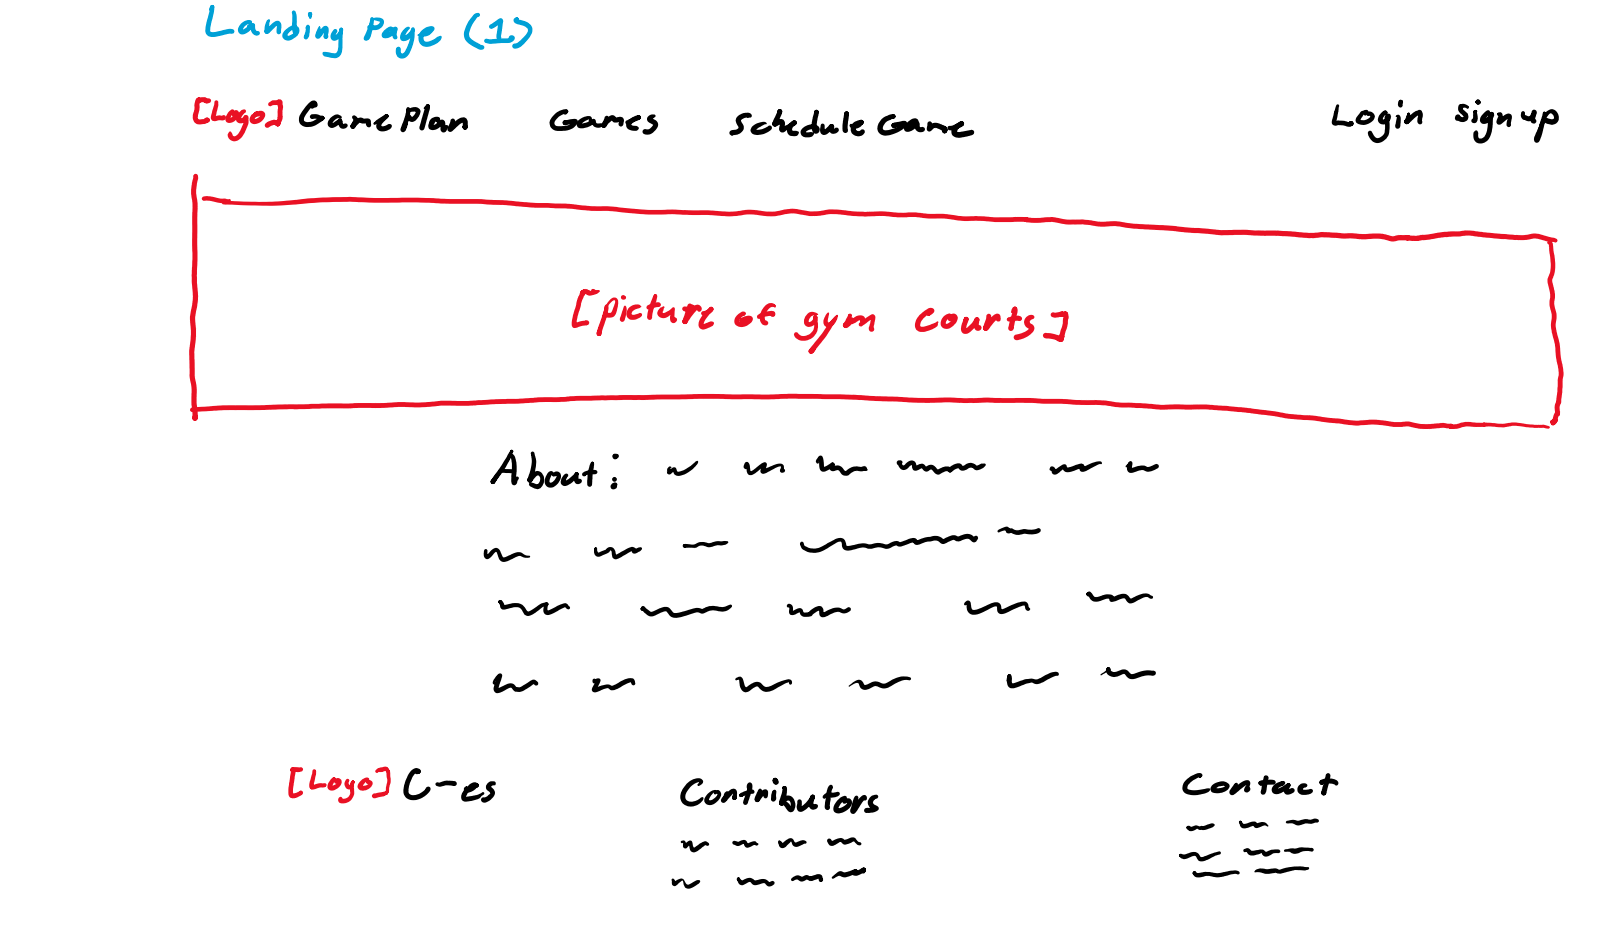 Landing Page (1)
[Logo] GamePlan Games Schedule Game Login Sign up
[picture of gym courts]
About:
[Logo] C-es Contributors Contact